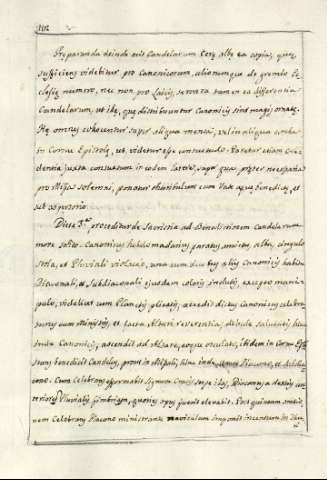 102
Præparanda deinde erit Candelarum Ceræ albæ ea copia, quæ
sufficiens videbitur pro Canonicorum, aliorumque de gremio Ec
clesiæ numero, nec non pro Laicis, servata tamen ea differentia
Candelarum, ut illæ, quæ distribuentur Canonicis sint magis ornatæ.
Hæ omnes collocentur super aliqua mensa, vel in aliqua
in Cornu Epistolæ, ut videtur esse consuetudo. Paretur etiam Cre
dentia juxta consuetum in eodem latere, super qua, præter necessaria
pro Missa solemni, ponatur thuribulum cum Vase aquæ benedictæ, et
aspersorio.
Dicta proceditur de Sacristia ad Benedictionem Candelarum
more solito. Canonicus hebdomadarius paratus amictu, alba, cingulo
stola, et Pluviali violaceo, una cum duobus aliis Canonicis habitu
Diaconali, et Subdiaconali ejusdem coloris indutis, excepto mani
pulo, videlicet cum Planetis plicatis, accedit dictus Canonicus celebra
turus cum Ministris, et facta Altari reverentia, deinde salutatis hinc
inde Canonicis, ascendit ad Altare, eoque osculato, ibidem in Cornu Epis
benedicit Candelas, prout in Missali, hinc inde Diacono, et Subdia
cono. Cum Celebrans efformabit signum Crucis super illas, Diaconus a dextris
Pluvialis fimbriam, quoties opus fuerit elevabit. Post quintam oratio
nem Celebrans Diacono ministrante naviculam imponit incensum in Thu